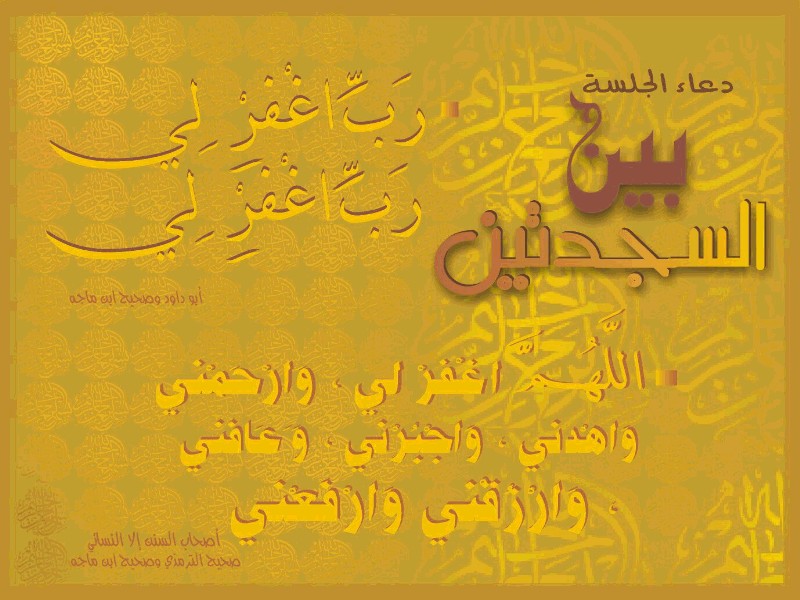 دعاء الجلسة
بين
السجدتين
رَبِّ اغْفِرْ لِي
رَبِّ اغْفِرْ لِي
أبو داود وصحيح ابن ماجه
اللَّهُمَّ اغْفِرْ لي ، وارْحَمْني
واهْدني ، واجْبُرْني ، وَعافني
، وارْزقْني وارْفَعْني
أصحاب السنن إلا النسائي
صحيح الترمذي وصحيح ابن ماجه